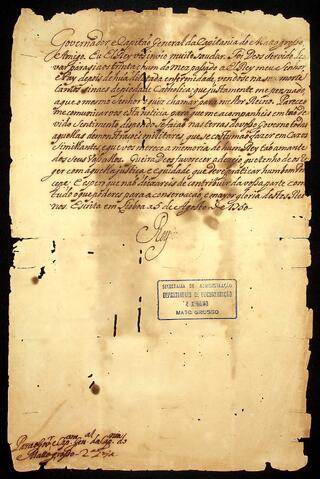 Governador e Capitaõ General da Capitania de Mattogrosso,
Amigo. Eu El Rey vos invio muito saudar. Foi Deos servido le
var para si aos trinta e hum do mez passado a El Rey meu Senhor,
e Pay depois de huã dilatada enfermidade, vendose na sua morte
tantos sinaes de piedade Catholica, que justamente me persuado
que o mesmo Senhor o quiz chamar para melhor Reino. Pareceo
me comunicarvos esta noticia, para que me acompanheis em taõ de
vido sentimento, e para dispores nas terras desse governo todas
aquellas demonstraçoes militares, que se costumaõ fazer em Cazos
similhantes, e que vos merece a memoria de hum Rey taõ amante
dos seus Vassalos. Queira Deos favorecer o dezejo que tenho de os re
ger com aquella justiça, e equidade que deve praticar hum Prin
cepe. E espero que naõ deixareis de contribuir da vossa parte com
tudo o que poderes para a conservaçaõ, e mayor gloria destes Rei
nos. Escrita em Lisboa a 5 de Agosto de 1750
Rey
SECRETARIA DE ADMINISTRAÇÃO
DEPARTAMENTO DE DOCUMENTAÇÃO
E ARQUIVO
MATO GROSSO
Para o Gov.or e Cap.am Gen.al da Cap.nia do
Mattogrosso 2.a via